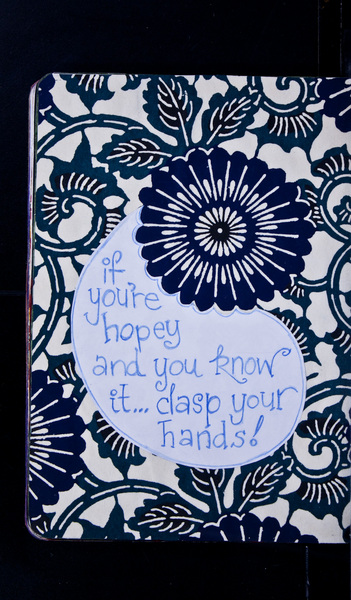 if
you're
hopey
and you know
it... clasp your
hands!